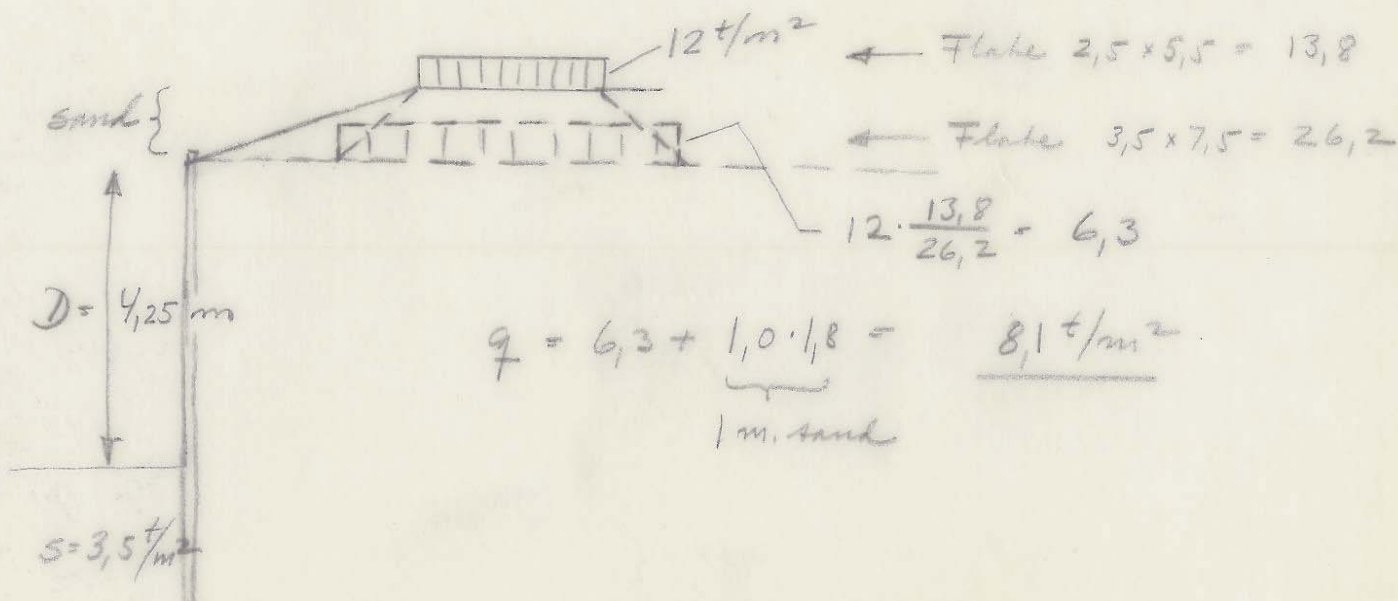 12 t/m²
Flate 2,5 x 5,5 = 13,8
sand {
Flate 3,5 x 7,5 = 26,2
12 · 13,8/26,2 = 6,3
D = 4,25 m
q = 6,3 + 1,0 · 1,8 = 8,1 t/m²
1 m. sand
s = 3,5 t/m²